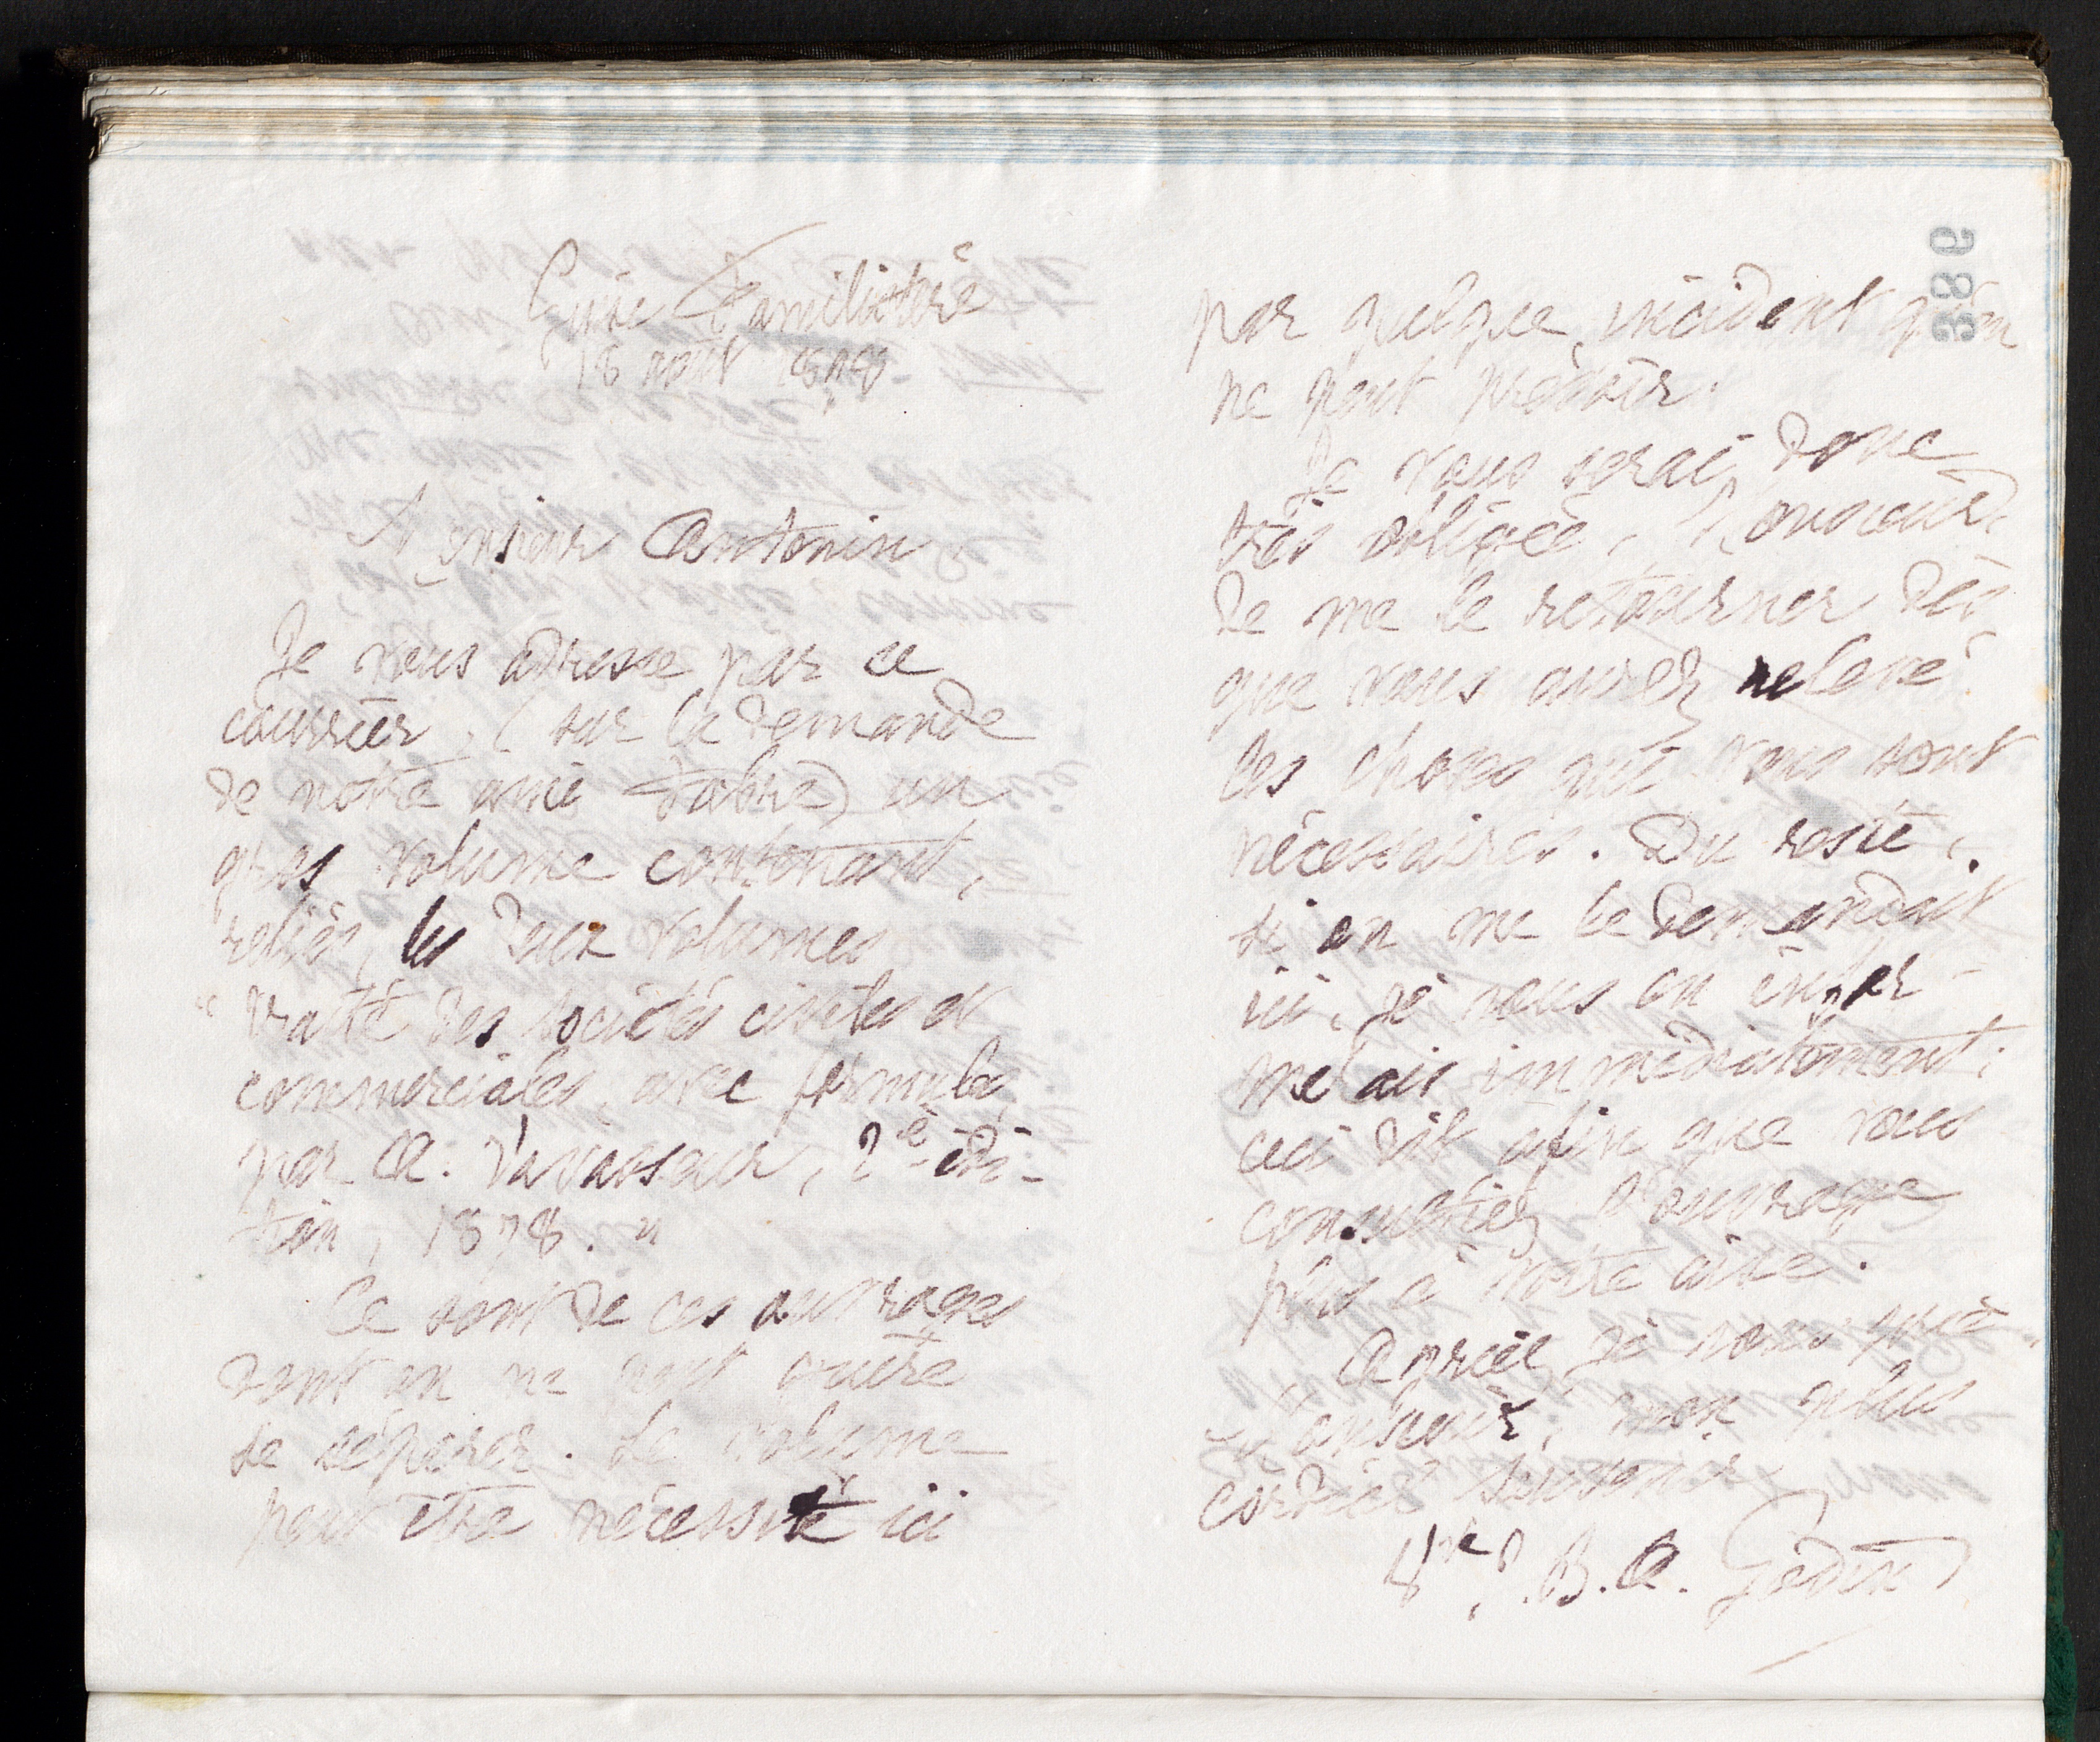 Guise Familistère
18 août 1898
Monsieur Antonin
Je vous adresse par ce
courrier, (sur la demande
de notre ami Fabre) un
gros volume contenant,
reliés, les deux volumes
" Traité des sociétés civiles et
commerciales, avec formules,
par A. Vavasseur, 2e édi-
tion, 1878. "
Ce sont de ces ouvrages
dont on ne peut guère
se séparer. Le volume
peut être nécessité ici
386
par quelque incident qu'on
ne peut prévoir.
Je vous serai donc
très obligée, Monsieur,
de me le retourner dès
que vous aurez relevé
les choses qui vous sont
nécessaires. Du reste,
si on me le demandait
ici, je vous en infor-
merais immédiatement;
ceci dit afin que vous
consultiez l'ouvrage
plus à votre aise.
Agréez, je vous prie,
Monsieur, mon plus
cordial souvenir
Vve J. B. A. Godin